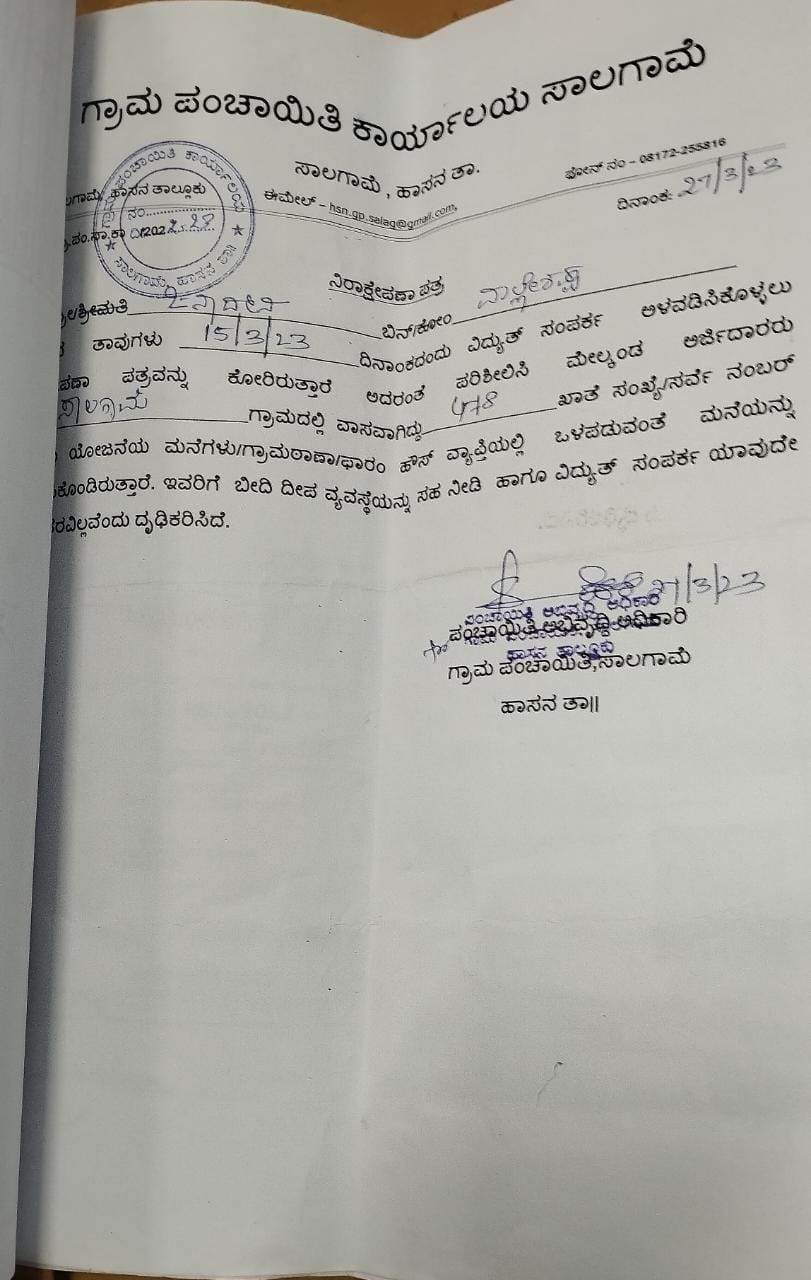 ಗ್ರಾಮ ಪಂಚಾಯಿತಿ ಕಾರ್ಯಾಲಯ ಸಾಲಗಾಮೆ
ಸಾಲಗಾಮೆ, ಹಾಸನ ತಾ.
ಫೋನ್ ನಂ - 08172-255816
ಲಗಾಮೆ, ಹಾಸನ ತಾಲ್ಲೂಕು
ಈಮೇಲ್ - hsn.gp.salag@gmail.com,
ದಿನಾಂಕ: 27/3/23
ನಂ
.ಪಂ.ಸಾ.ಕಾ
ನಿರಾಕ್ಷೇಪಣಾ ಪತ್ರ
/ಶ್ರೀಮತಿ ಬಿನ್/ಕೋಂ
ತಾವುಗಳು 15/3/23 ದಿನಾಂಕರಂದು ವಿದ್ಯುತ್ ಸಂಪರ್ಕ ಅಳವಡಿಸಿಕೊಳ್ಳಲು
ಪಣಾ ಪತ್ರವನ್ನು ಕೋರಿರುತ್ತಾರೆ ಅದರಂತೆ ಪರಿಶೀಲಿಸಿ ಮೇಲ್ಕಂಡ ಅರ್ಜಿದಾರರು
ಸಾಲಗಾಮೆ ಗ್ರಾಮದಲ್ಲಿ ವಾಸವಾಗಿದ್ದು 478 ಖಾತೆ ಸಂಖ್ಯೆ/ಸರ್ವೆ ನಂಬರ್
ಯೋಜನೆಯ ಮನೆಗಳು/ಗ್ರಾಮಠಾಣಾ/ಫಾರಂ ಹೌಸ್ ವ್ಯಾಪ್ತಿಯಲ್ಲಿ ಒಳಪಡುವಂತೆ ಮನೆಯನ್ನು
ಕೊಂಡಿರುತ್ತಾರೆ. ಇವರಿಗೆ ಬೀದಿ ದೀಪ ವ್ಯವಸ್ಥೆಯನ್ನು ಸಹ ನೀಡಿ ಹಾಗೂ ವಿದ್ಯುತ್ ಸಂಪರ್ಕ ಯಾವುದೇ
ರವಿಲ್ಲವೆಂದು ದೃಢಿಕರಿಸಿದೆ.
27/3/23
ಪಂಚಾಯಿತಿ ಅಭಿವೃದ್ಧಿ ಅಧಿಕಾರಿ
ಪಂಚಾಯಿತಿ ಅಭಿವೃದ್ಧಿ ಅಧಿಕಾರಿ
ಹಾಸನ ತಾಲ್ಲೂಕು
ಗ್ರಾಮ ಪಂಚಾಯಿತಿ,ಸಾಲಗಾಮೆ
ಹಾಸನ ತಾ||